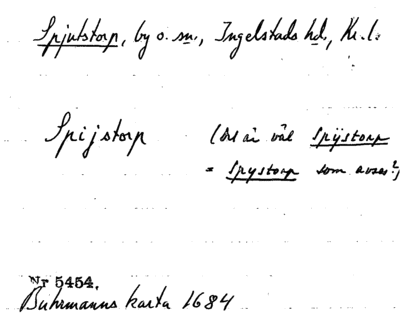 Spjutstorp, by o. sn., Ingelstads hd., Kr. l.
Spijstorp (det är väl Spijstorp
= Spystorp som avses?)
Nr 5454.
Buhrmanns karta 1684